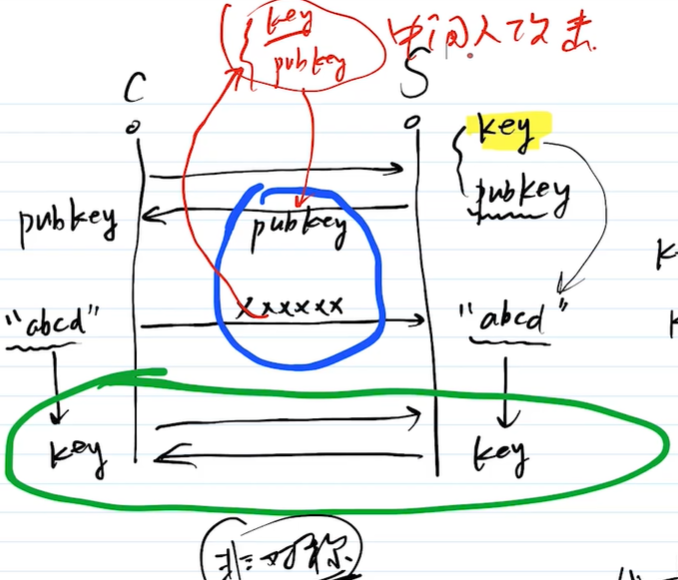 key
pubkey
中间人攻击
C
S
key
pubkey
pubkey
pubkey
xxxxxx
"abcd"
"abcd"
key
key
非对称